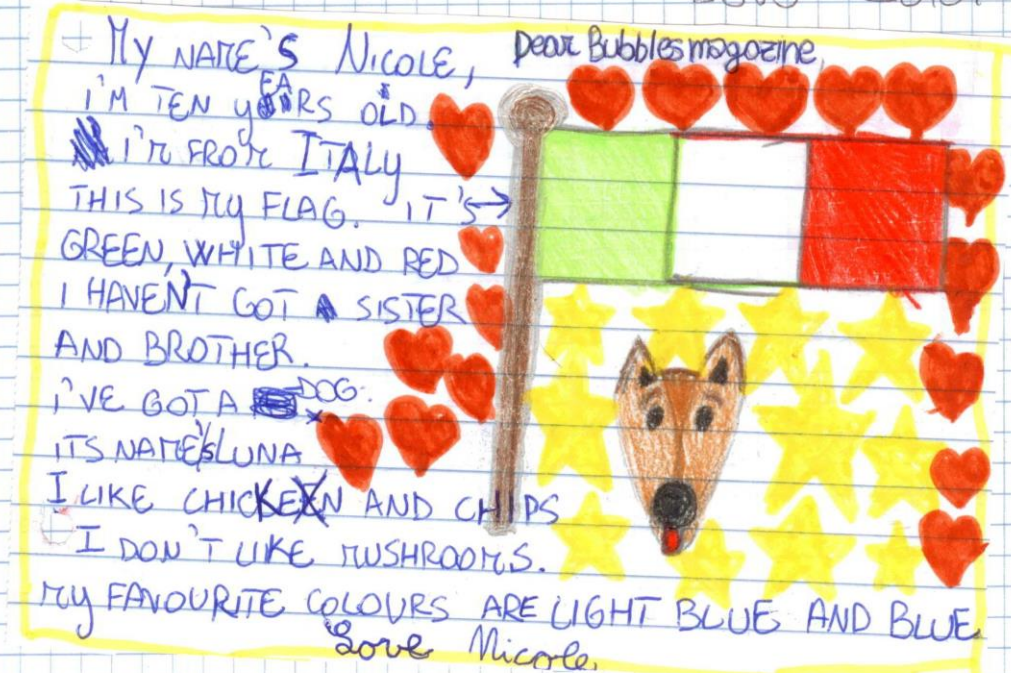 Dear Bubbles magazine,
My NAME'S NICOLE,
I'M TEN yEARS OLD.
I'M FROM ITALY
THIS IS My FLAG. IT'S →
GREEN, WHITE AND RED
I HAVEN'T GOT A SISTER
AND BROTHER.
I'VE GOT A DOG.
ITS NAME'S LUNA
I LIKE CHICKEN AND CHIPS
I DON'T LIKE MUSHROOMS.
My FAVOURITE COLOURS ARE LIGHT BLUE AND BLUE
Love Nicole